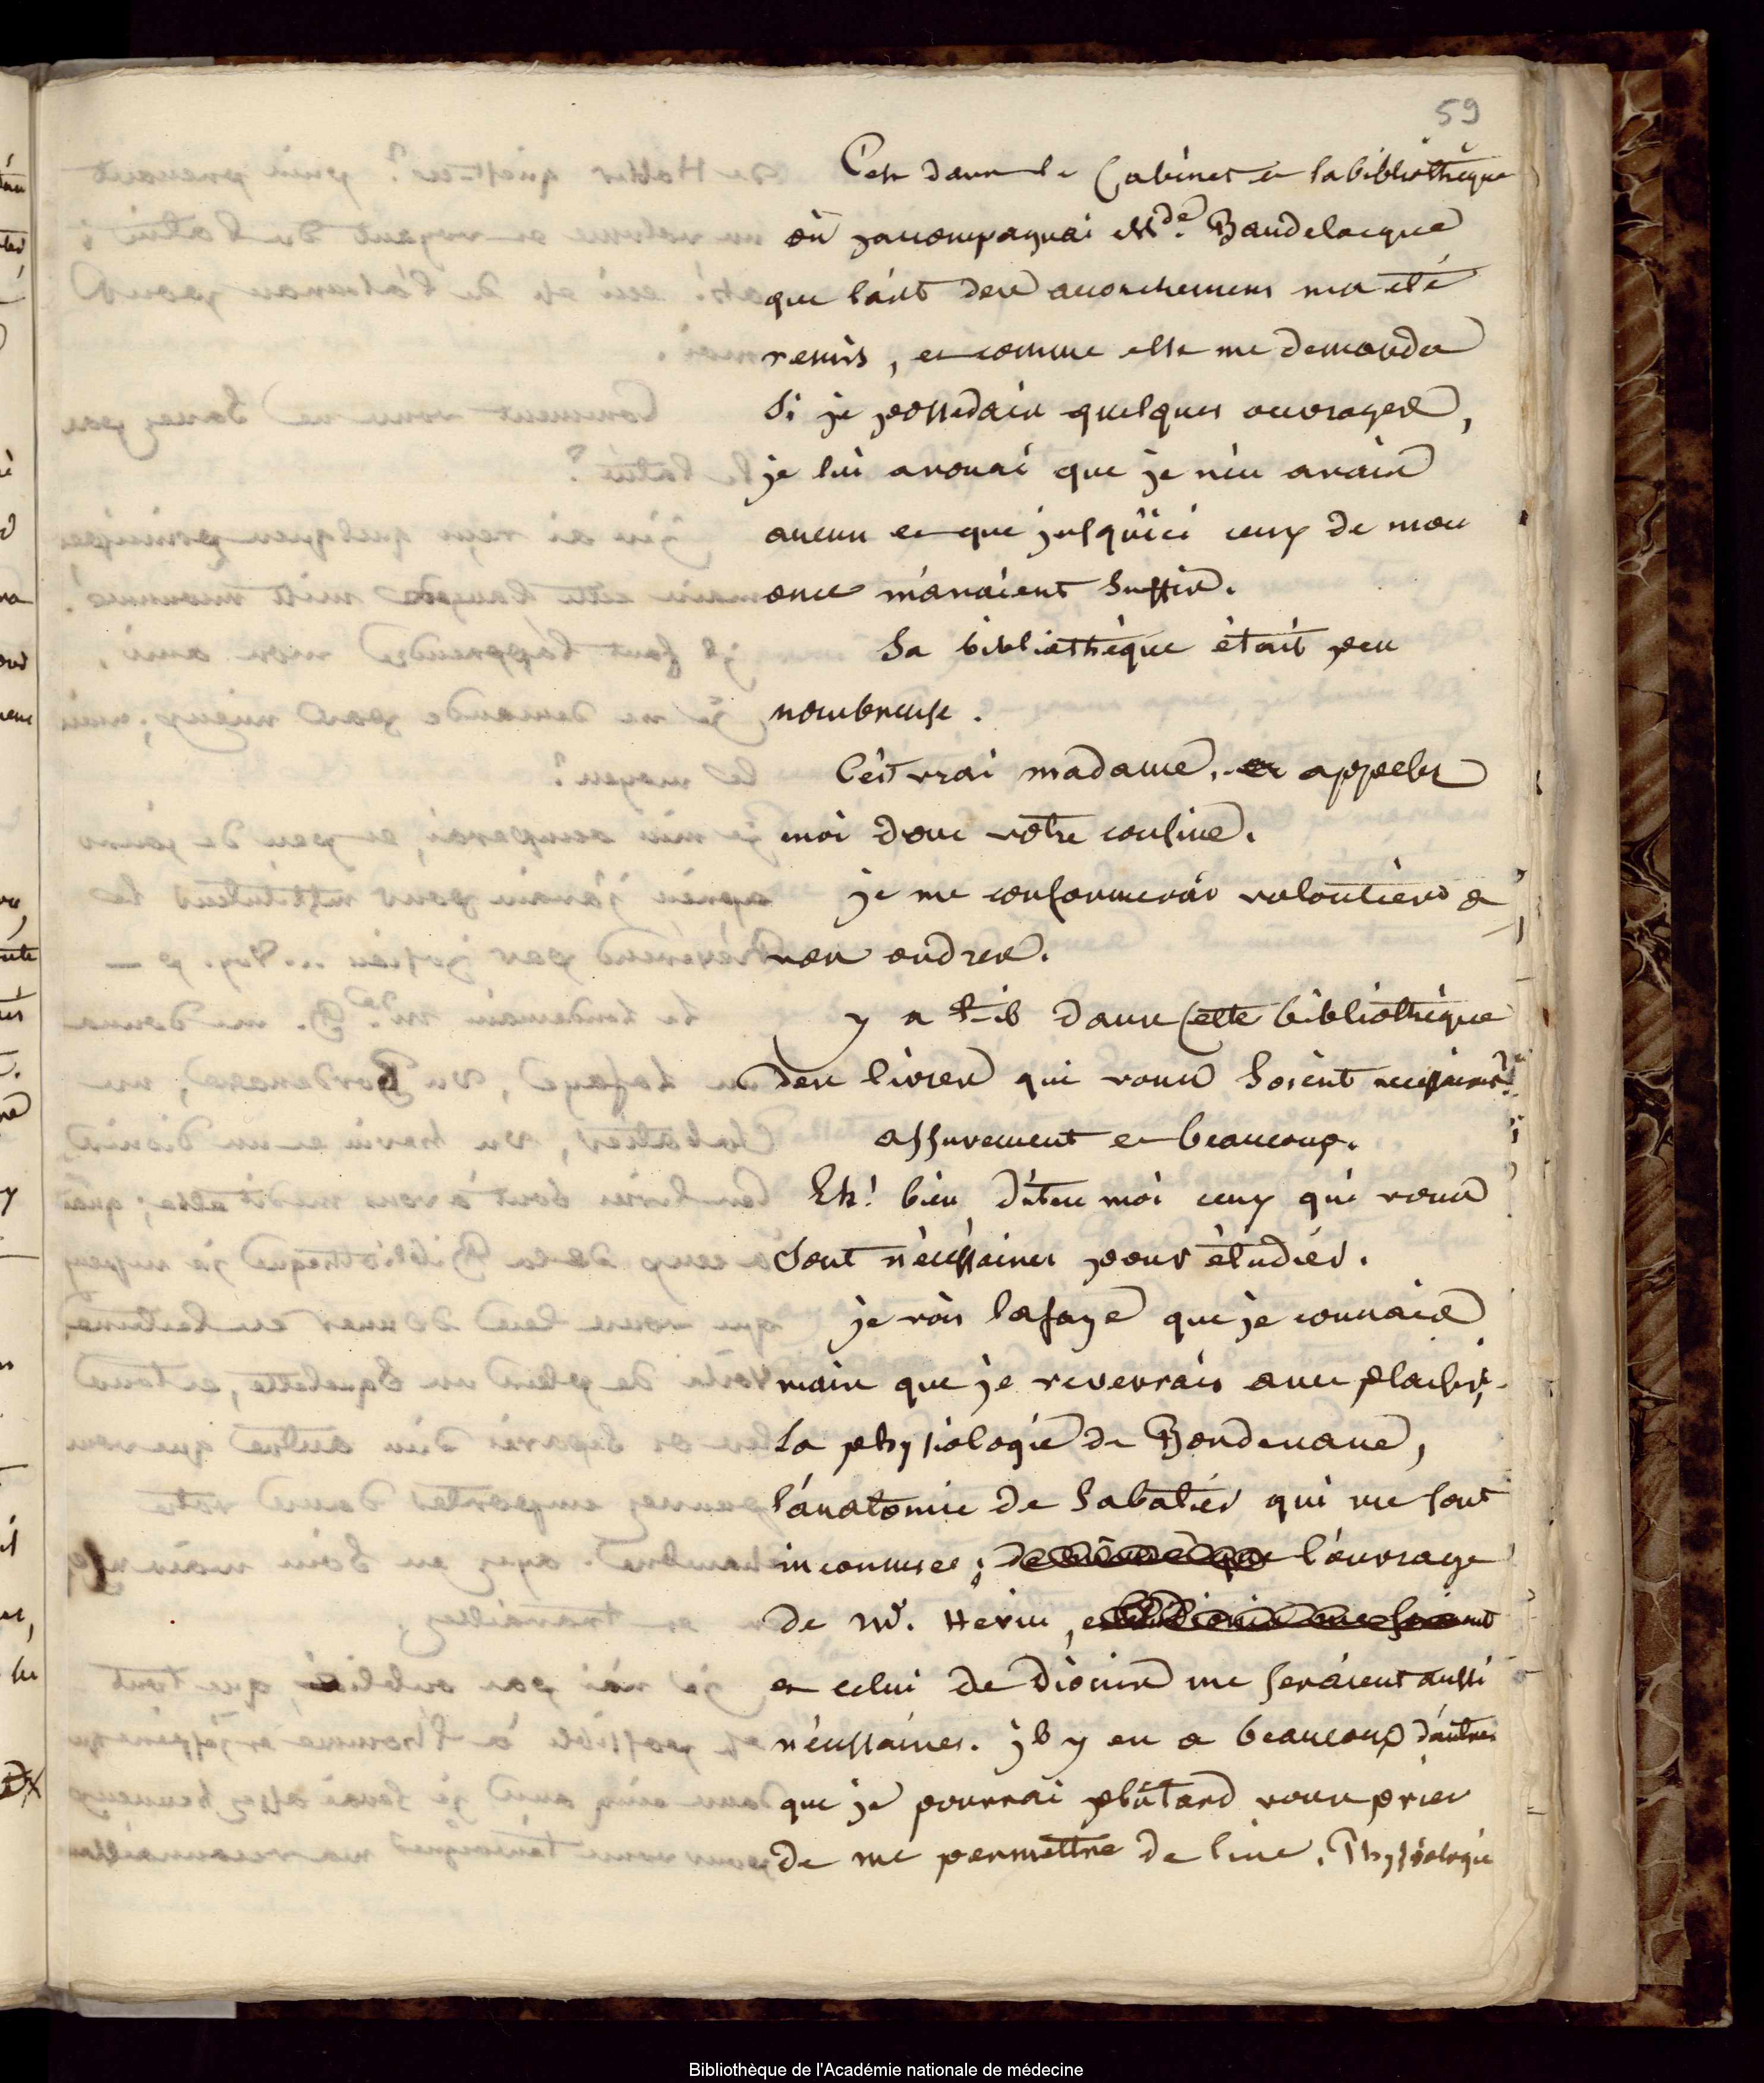 59
C'est dans le Cabinet et la bibliothèque
où j'accompagnai Mde. Baudelocque
que l'art des accouchemens m'a été
remis, et comme elle me demanda
Si je possedais quelques ouvrages,
je lui avouai que je n'en avais
aucun et que jusqu'ici ceux de mon
oncle m'avaient Suffis.
Sa bibliothèque était peu
nombreuse.
C'est vrai madame. appelez
moi donc votre cousine.
je me conformerai volontiers a
vos ordres.
y a t-il dans Cette bibliothèque
des livres qui vous Soient necessaires?
assurement et beaucoup.
Eh! bien dites moi ceux qui vous
Sont nécessaires pour étudier.
je vois lafaye que je connais
mais que je reverrais avec plaisir,
La physiologie de Bordenave,
l'anatomie de Sabatier qui me sont
inconnues; l'ouvrage
de Mr. Hevin,
et celui de Dionis me seraient aussi
nécessaires. il y en a beaucoup d'autres
que je pourrai plûtard vous prier
de me permettre de lire. Physiologie
Bibliothèque de l'Académie nationale de médecine